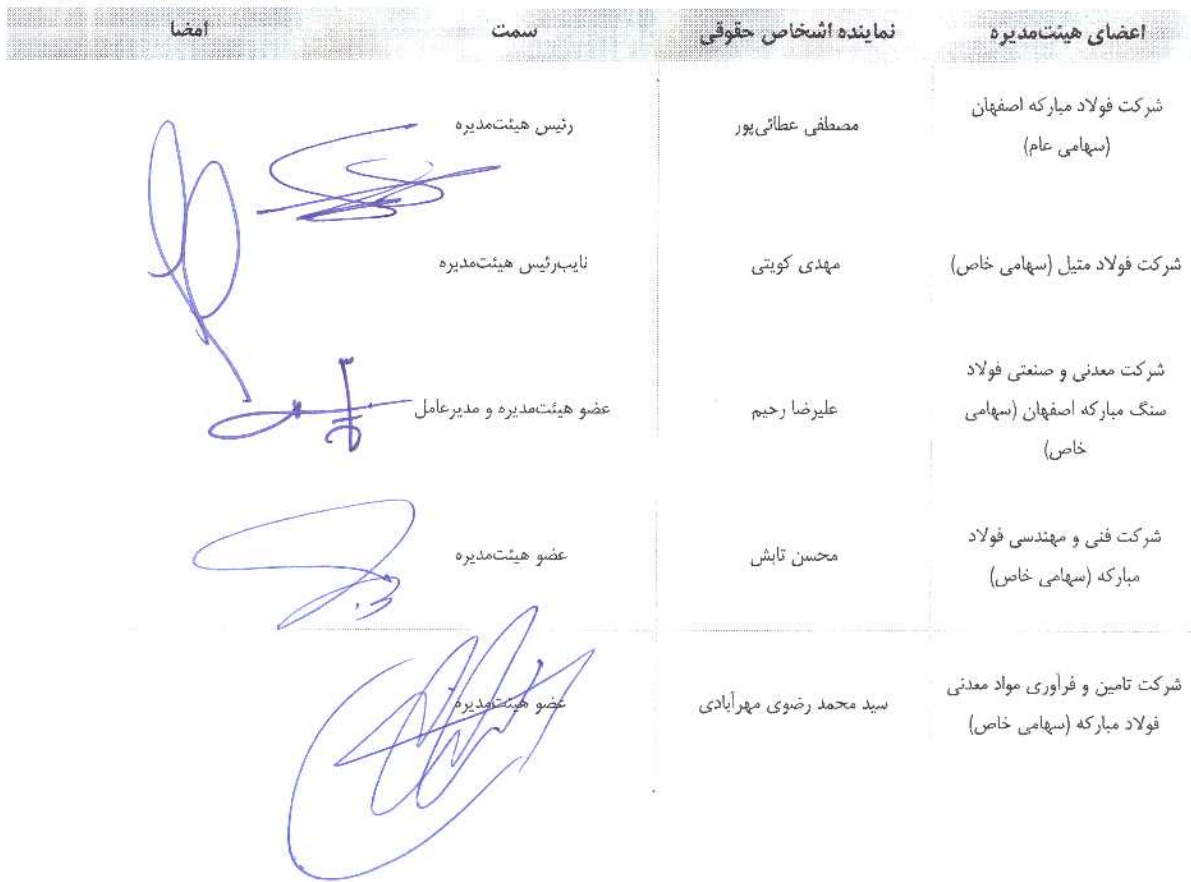 اعضای هیئت‌مدیره نماینده اشخاص حقوقی سمت امضا
شرکت فولاد مبارکه اصفهان
(سهامی عام)
مصطفی عطائی‌پور
رئیس هیئت‌مدیره
شرکت فولاد متیل (سهامی خاص)
مهدی کویتی
نایب‌رئیس هیئت‌مدیره
شرکت معدنی و صنعتی فولاد
سنگ مبارکه اصفهان (سهامی
خاص)
علیرضا رحیم
عضو هیئت‌مدیره و مدیرعامل
شرکت فنی و مهندسی فولاد
مبارکه (سهامی خاص)
محسن تابش
عضو هیئت‌مدیره
شرکت تامین و فرآوری مواد معدنی
فولاد مبارکه (سهامی خاص)
سید محمد رضوی مهرآبادی
عضو هیئت‌مدیره